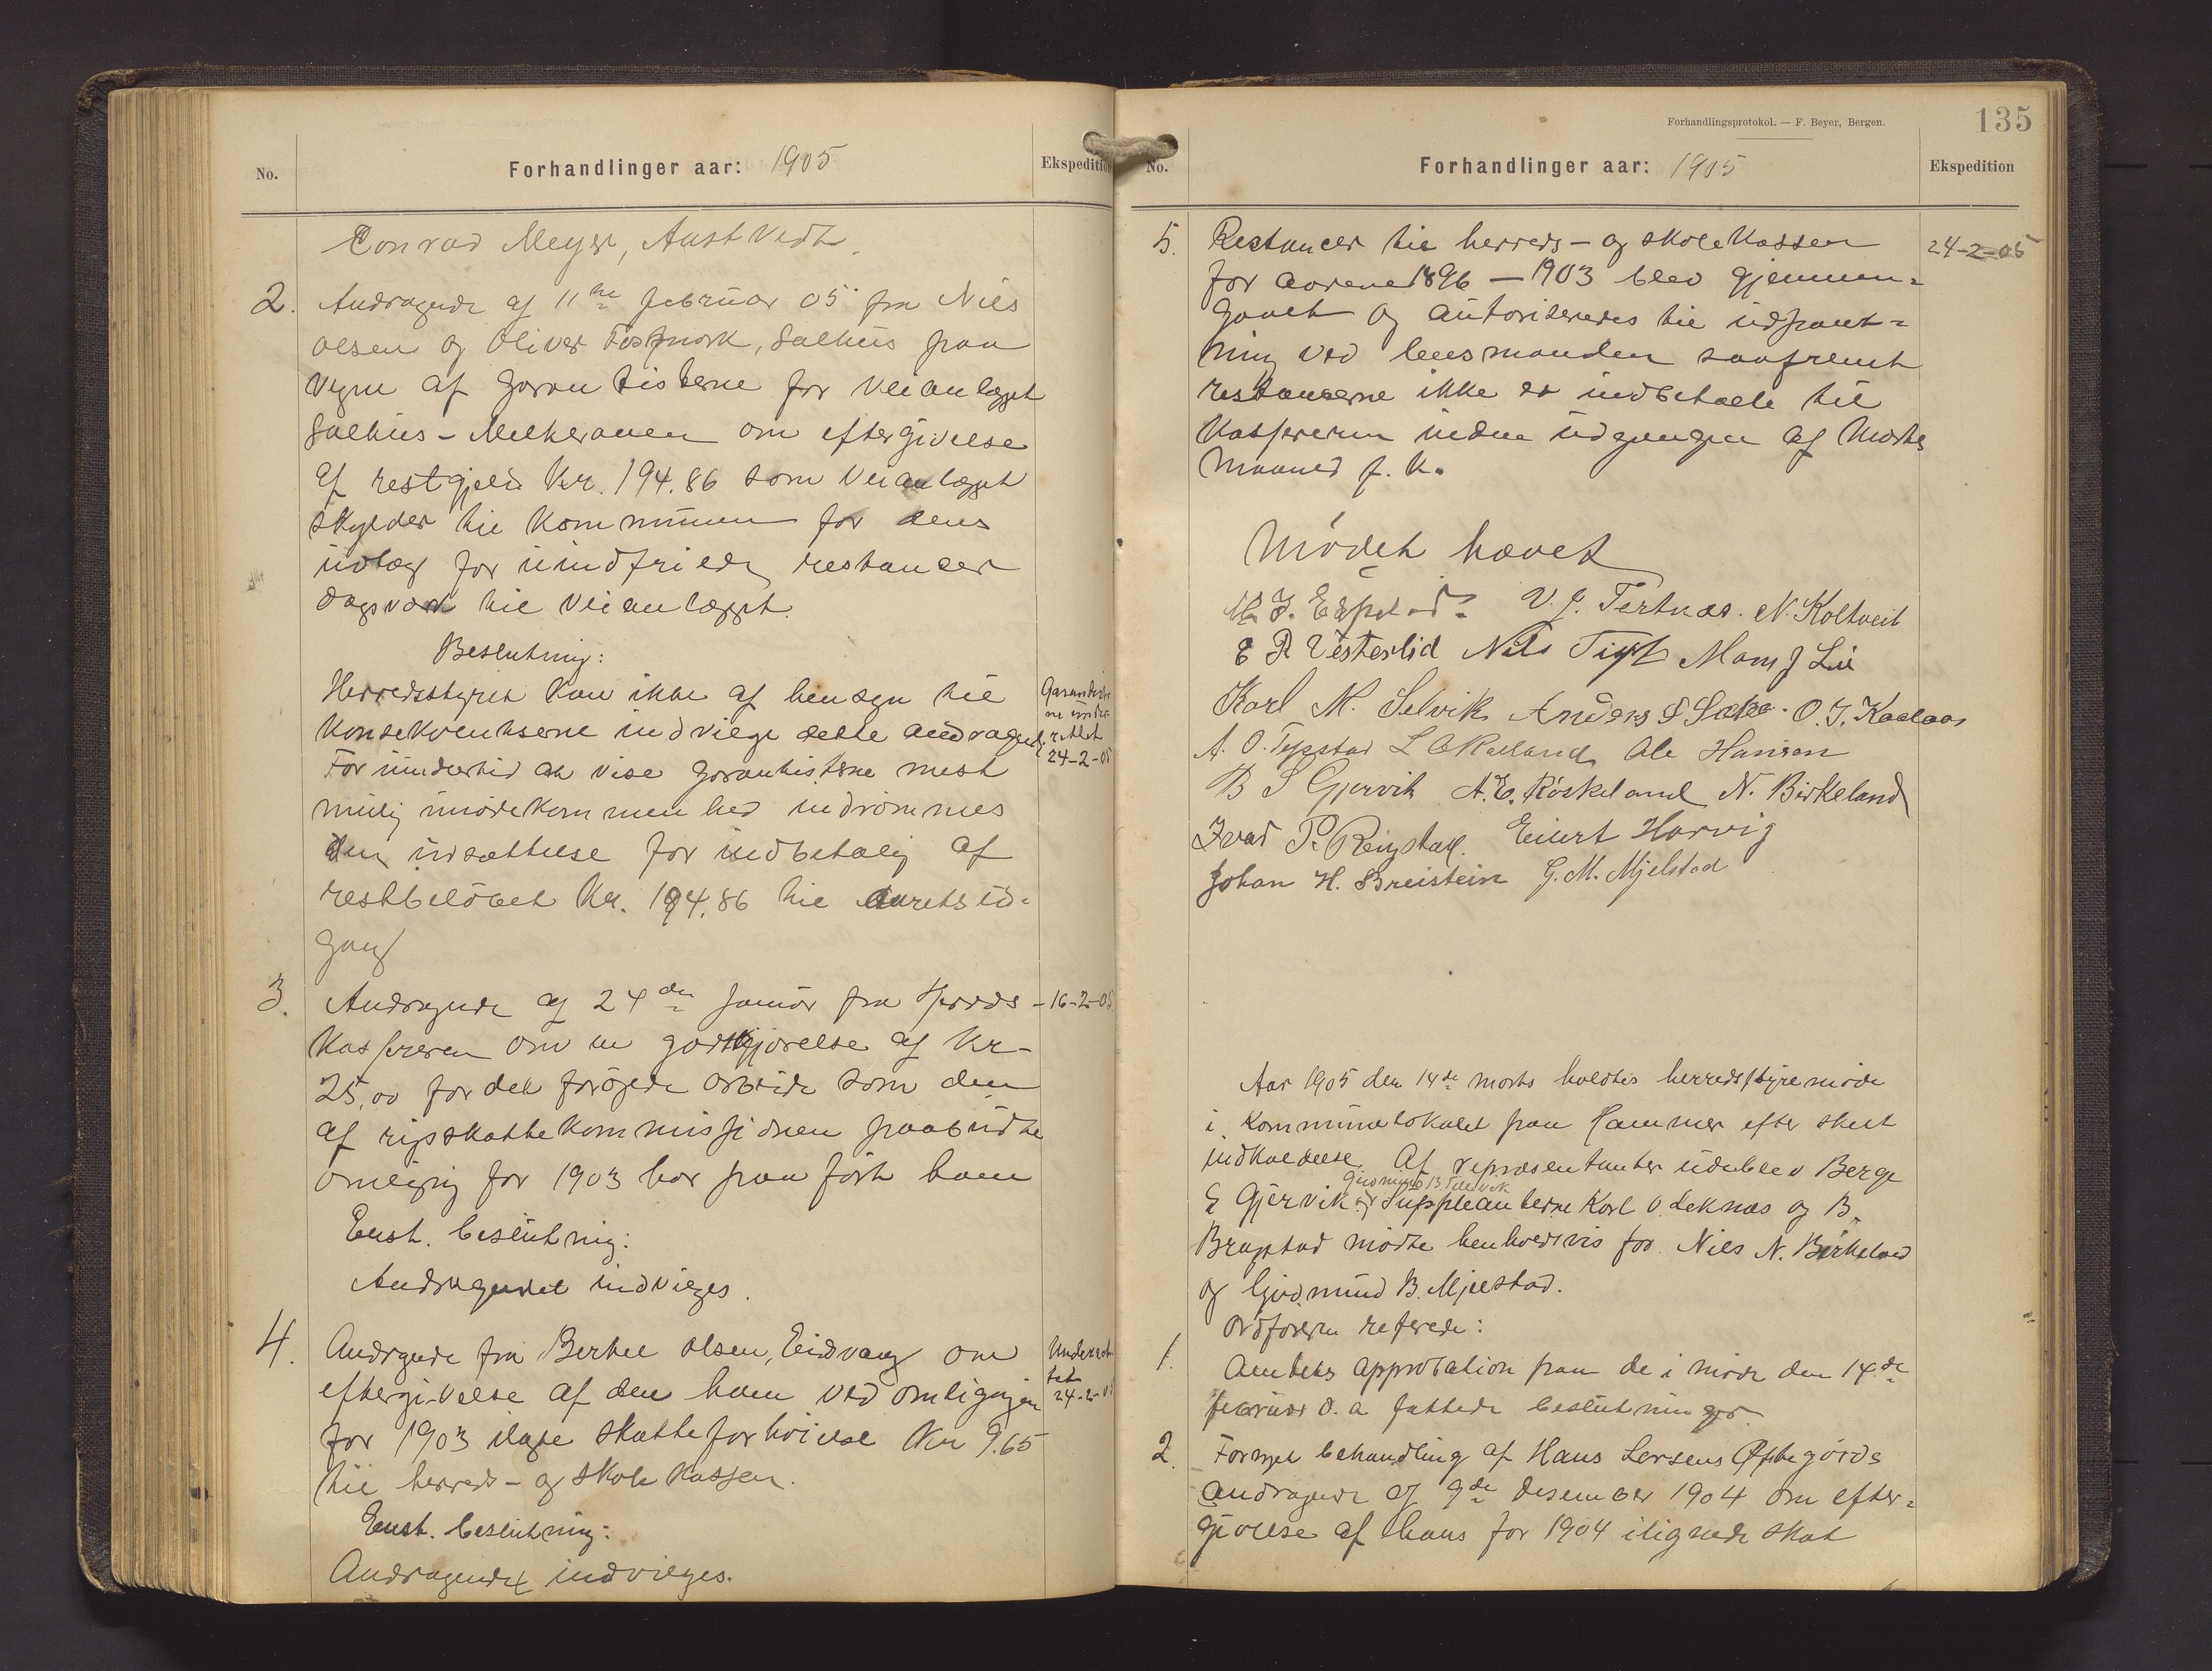 No.
Forhandlinger aar: 1905
Ekspedition
Conrad Meyer, Austvedt.
2. Andragende af 11te februar 05 fra Nils
olsen og Oliver Tosgnork, Salhus paa
vegne af garantisterne for veianlægget
Salhus - Melkeraaen om eftergivelse
af restgjeld Kr. 194.86 som veianlægget
skylder til kommunen for dens
udlæg for uindfriede restancer
dagsværk til veianlægget.
Beslutning:
Herredsstyret kan ikke af hensyn til
konsekventserne indvilge dette andragende.
For imidlertid at vise garantisterne mest
mulig imødekommenhed indrømmes
den udsættelse for indbetaling af
restbeløbet Kr. 194.86 til aarets ud-
gang
Garantister
ne under
rettet
24-2-05
3. Andragende af 24de januar fra Herreds-
kassereren om en godtgjørelse af Kr-
25,00 for det forøgede arbeide som den
af rigsskattekommissionen paabudte
omligning for 1903 har paaført ham
Enst. beslutning:
Andragendet indvilges.
16-2-05
4. Andragende fra Berthel olsen, Eidsvaag om
eftergivelse af den ham ved omligningen
for 1903 ilagte skatteforhøielse Kr 9.65
til herreds- og skolekassen.
Enst. beslutning:
Andragendet indvilges.
Underret
tet
24-2-05
Forhandlingsprotokol. — F. Beyer, Bergen.
135
No.
Forhandlinger aar: 1905
Ekspedition
5. Restancer til herreds- og skolekassen
for aarene 1896 - 1903 blev gjennem-
gaaet og autoriseredes til udpant-
ning ved lensmanden saafremt
restancerne ikke er indbetalt til
kassereren inden udgangen af Marts
maaned f. k.
24-2-05
Mødet hævet
M. J. Espelid. V. J. Tertnæs. N. Koltveit
E R Vesterlid Nils Tist Mons J Lie
Karl M. Selvik Anders S Sæbø. O. J. Kaalaas
A. O. Tepstad L ORæland Ole Hansen
B S Gjervik A. E. Røskeland N. Birkeland
Ivar P. Reigstad. Einert Horvig
Johan H. Breistein G. M. Mjelstad
Aar 1905 den 14de marts holdtes herredsstyremøde
i kommunelokalet paa Hammer efter skeet
indkaldelse. Af repræsentanter udeblev Berge
Gudmund B. Tellevik
E Gjervik og Suppleanterne Karl O. Leknæs og B.
Brugstad mødte henholdsvis for Nils N. Birkeland
og Gudmund B. Mjelstad.
Ordføreren referede:
1. Amtets approbation paa de i møde den 14de
februar d. a fattede beslutninger.
2. Fornyet behandling af Hans Larsens Øfstegårds
andragende af 9de desember 1904 om efter-
givelse af hans for 1904 ilignede skat